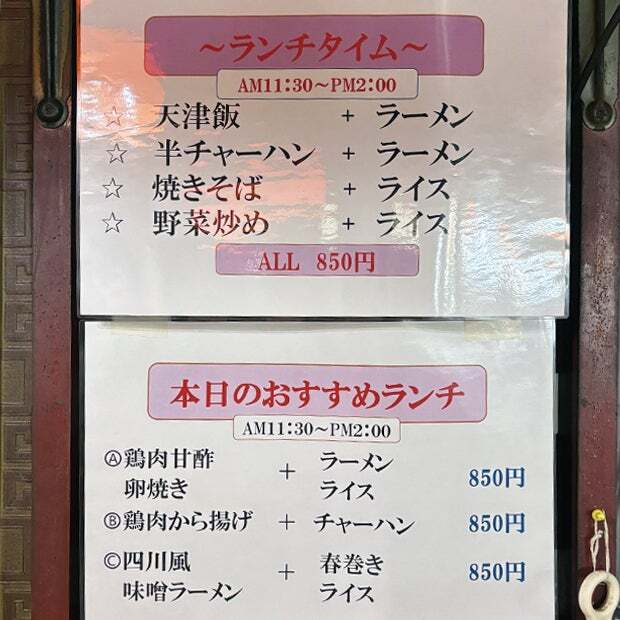 ～ランチタイム～
AM11:30～PM2:00
☆ 天津飯 + ラーメン
☆ 半チャーハン + ラーメン
☆ 焼きそば + ライス
☆ 野菜炒め + ライス
ALL 850円
本日のおすすめランチ
AM11:30～PM2:00
Ⓐ鶏肉甘酢 + ラーメン
卵焼き ライス 850円
Ⓑ鶏肉から揚げ + チャーハン 850円
Ⓒ四川風 + 春巻き 850円
味噌ラーメン ライス